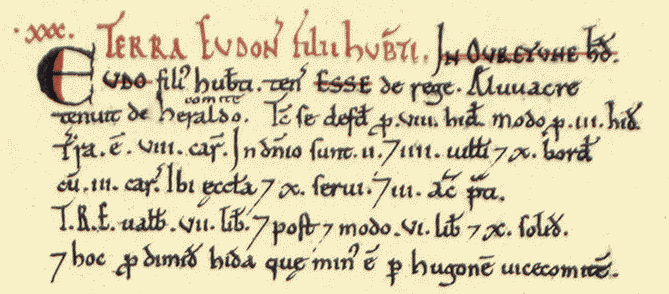 .xxx. TERRA EUDON' filii hub̄ti. IN OVRETVNE HD̄.
EUDO filī hub̄ti. ten̄ ESSE de rege. Aluuacre
tenuit de heraldo. comite Tc̄ se defd̄ ꝓ.viii. hid̄. modo.ꝓ.iii. hid̄.
Tr̄a. ē. viii. car̄. In dn̄io sunt. ii. ⁊ iiii. uitti ⁊ x. bord̄
cū. iii. car̄. Ibi ęccła ⁊ x. serui. ⁊ iii. ac̄ p̄ti.
T.R.E. ualb̄. vii. lib̄. ⁊ post ⁊ modo. vi. lib̄ ⁊ x. solid̄.
⁊ hoc ꝓ dimid̄ hida quę min' ē p hugonē uicecomitē.